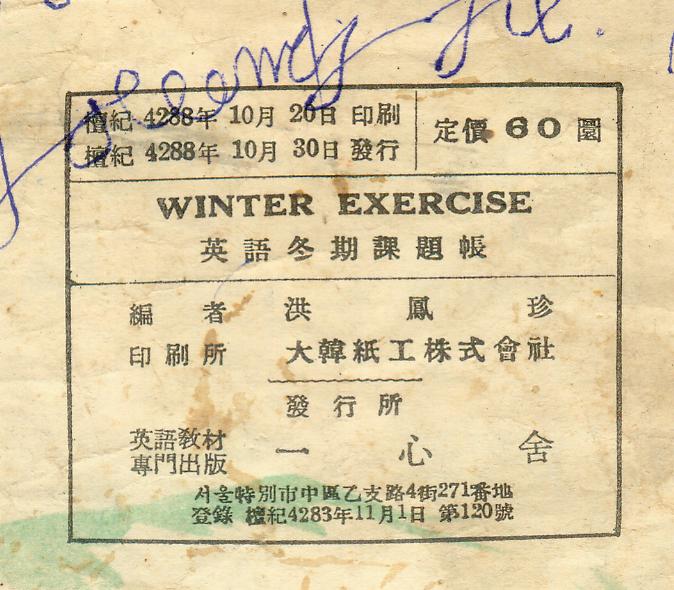 檀紀 4288年 10月 20日 印刷
檀紀 4288年 10月 30日 發行
定價 60 圜
WINTER EXERCISE
英語冬期課題帳
編者 洪鳳珍
印刷所 大韓紙工株式會社
發行所
英語敎材
專門出版
一心舍
서울特別市中區乙支路4街271番地
登錄 檀紀4283年11月1日 第120號